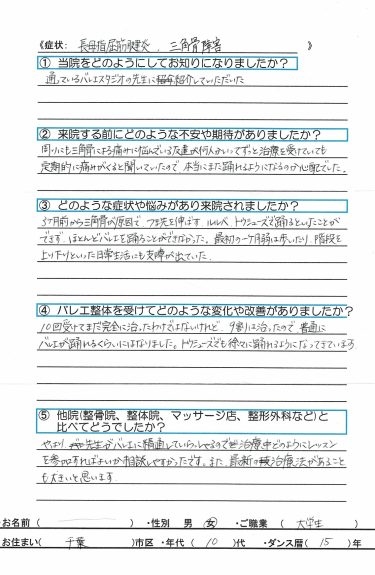 《症状: 長母指屈筋腱炎、三角骨障害 》
① 当院をどのようにしてお知りになりましたか?
通っているバレエスタジオの先生に紹介していただいた
② 来院する前にどのような不安や期待がありましたか?
周りにも三角骨による痛みに悩んでいる友達が何人かいてずっと治療を受けていても
定期的に痛みがくると聞いていたので本当にまた踊れるようになるのか心配でした。
③ どのような症状や悩みがあり来院されましたか?
3ヶ月前から三角骨が原因で、つま先を伸ばす、ルルベ、トウシューズで踊るといったことが
できず、ほとんどバレエを踊ることができなかった。最初の一ヶ月弱は歩いたり、階段を
上り下りといった日常生活にも支障が出ていた。
④ バレエ整体を受けてどのような変化や改善がありましたか?
10回受けてまだ完全に治ったわけではないけれど、9割は治ったので普通に
バレエが踊れるくらいにはなりました。トウシューズでも徐々に踊れるようになってきています
⑤ 他院(整骨院、整体院、マッサージ店、整形外科など)と
比べてどうでしたか?
やはり、先生がバレエに精通していらっしゃるので治療中どのようにレッスン
を参加すればよいか相談しやすかったです。また、最新の治療法があること
も大きいと思います。
お名前( ) ・性別 男 女 ・ご職業 ( 大学生 )
お住まい( 千葉 )市区 ・年代 ( 10 )代 ・ダンス暦( 15 )年